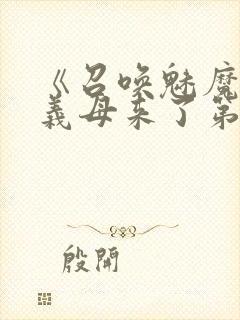 《召唤魅魔
义母来了第
殷开